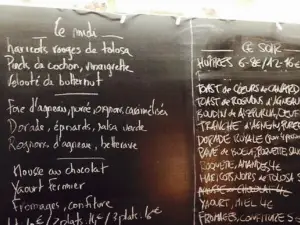 Ce midi
haricots rouges de tolosa
Pieds de cochon, vinaigrette
Velouté de butternut
Foie d'agneau, purée, oignons caramélisés
Dorade, épinards, salsa verde
Rognons d'agneau, betterave
Mousse au chocolat
Yaourt fermier
Fromages, confiture
2 plats 3 plats
CE SOIR
HUÎTRES 6-8€/12-16€
TOAST DE CŒURS DE CANARD
TOAST DE ROGNONS D'AGNEAU
BOUDIN DE
TRANCHE D'AGNEAU, PURÉE
DORADE ROYALE
PAVÉ DE BOEUF, ROQUETTE
ROQUETTE, AMANDES, 4€
HARICOTS ROUGES DE TOLOSA
MOUSSE AU CHOCOLAT 4€
YAOURT, MIEL 4€
FROMAGES, CONFITURE